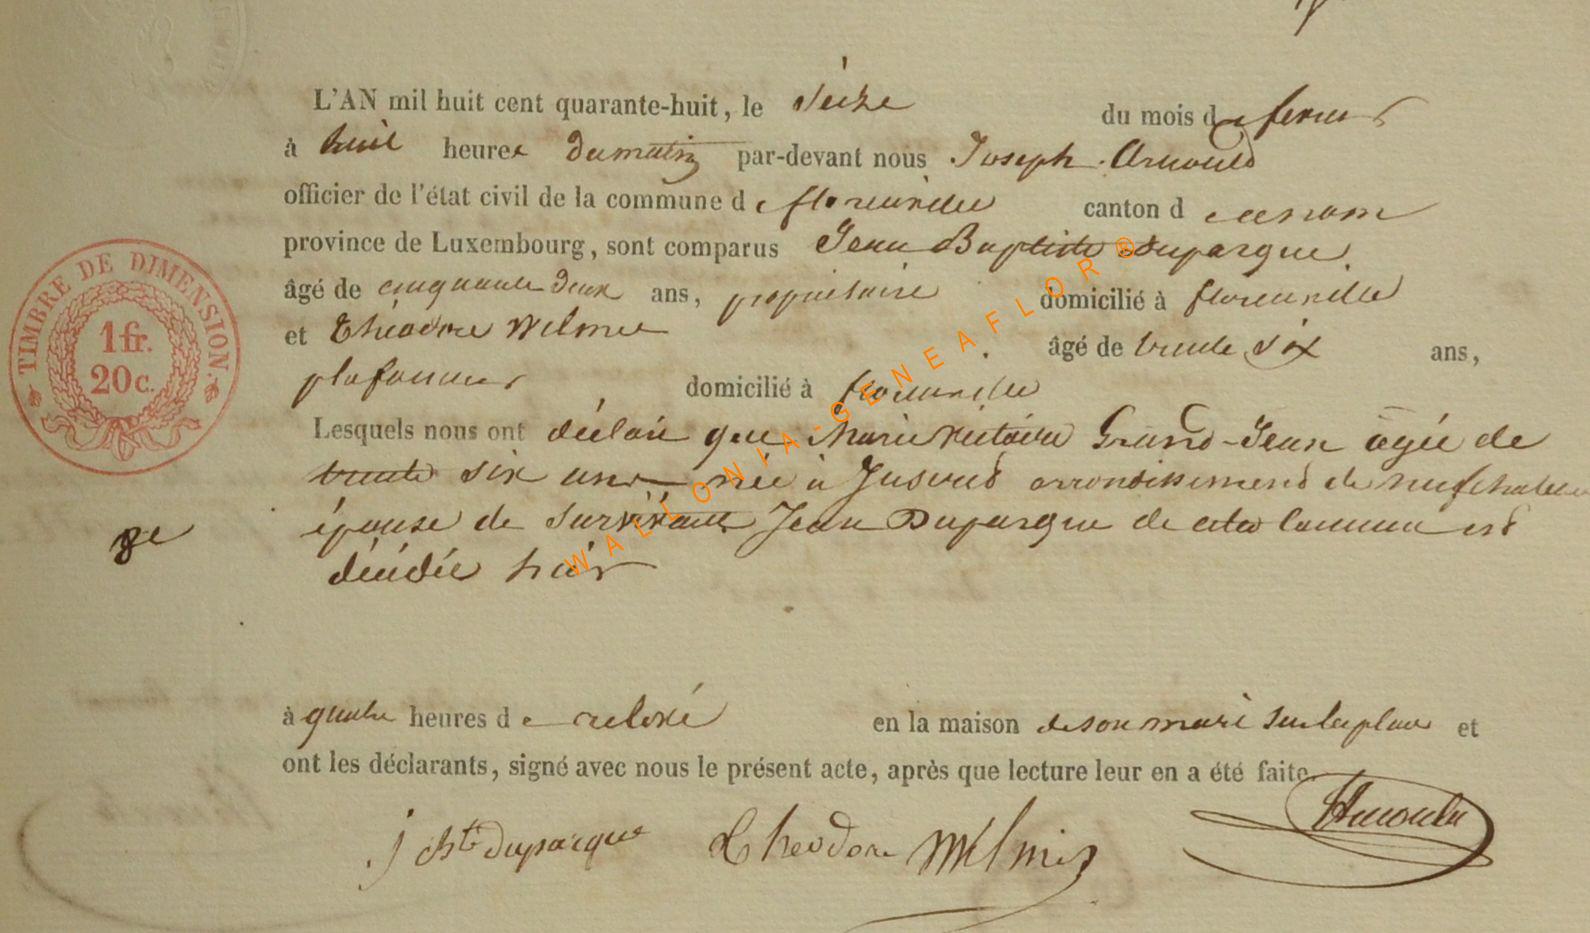 L'AN mil huit cent quarante-huit, le seize du mois de fevrier
à huit heures du matin par-devant nous Joseph Arnould
officier de l'état civil de la commune de florenville canton d
province de Luxembourg, sont comparus Jean Baptiste Duparque
âgé de cinquante deux ans, propriétaire domicilié à florenville
et Théodore Wilmes âgé de trente six ans,
plafonneur domicilié à florenville
Lesquels nous ont déclaré que Marie Victoire Grand-Jean agée de
trente six ans née à arrondissement de neufchateau
épouse de survivant Jean Duparque de cette commune est
décédée hier
à quatre heures de relevé en la maison de son mari sur la place et
ont les déclarants, signé avec nous le présent acte, après que lecture leur en a été faite.
J Bte duparque Theodore Wilmes Arnould
TIMBRE DE DIMENSION.
1 fr.
20 c.
WALLONIA-GENEAFLOR®